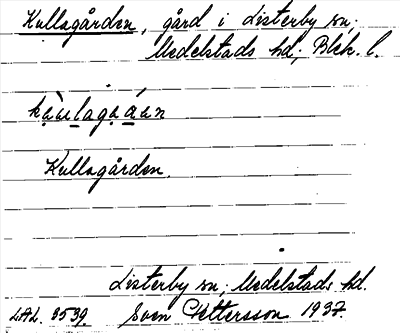 Kullagården, gård i Listerby sn.
Medelstads hd; Blek. l.
Kullagården.
Listerby sn; Medelstads hd.
LAL. 3539. Sven Pettersson 1937.